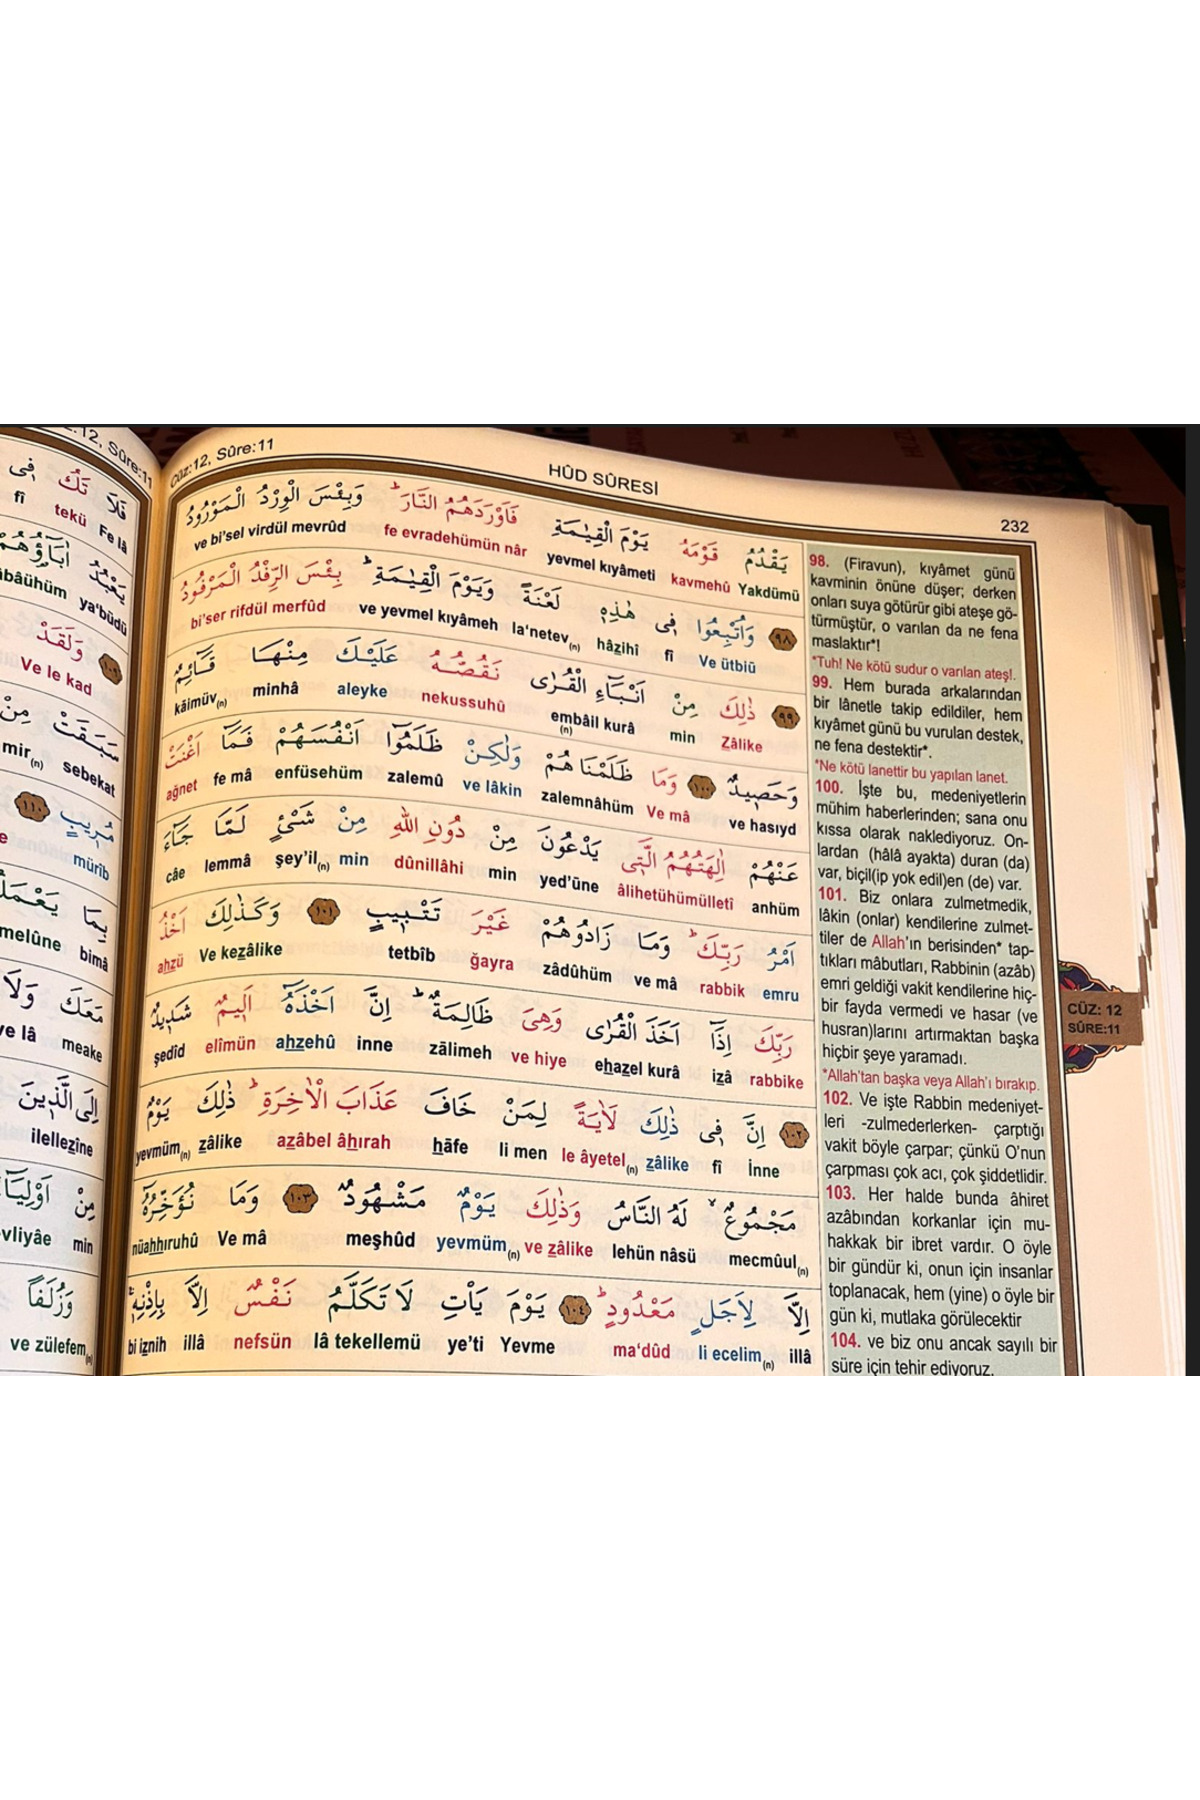 Cüz:12, Sûre:11
HÛD SÛRESİ
232
يَقْدُمُ قَوْمَهُ يَوْمَ الْقِيٰمَةِ فَاَوْرَدَهُمُ النَّارَۜ وَبِئْسَ الْوِرْدُ الْمَوْرُودُ
Yakdümü kavmehû yevmel kıyâmeti fe evradehümün nâr ve bi'sel virdül mevrûd
﴿٩٨﴾ وَاُتْبِعُوا ف۪ي هٰذِه۪ لَعْنَةً وَيَوْمَ الْقِيٰمَةِۜ بِئْسَ الرِّفْدُ الْمَرْفُودُ
Ve ütbiû fî hâzihî la'netev(n) ve yevmel kıyâmeh bi'ser rifdül merfûd
﴿٩٩﴾ ذٰلِكَ مِنْ اَنْبَٓاءِ الْقُرٰى نَقُصُّهُ عَلَيْكَ مِنْهَا قَٓائِمٌ
Zâlike min embâil(n) kurâ nekussuhû aleyke minhâ kâimüv(n)
وَحَص۪يدٌ ﴿١٠٠﴾ وَمَا ظَلَمْنَاهُمْ وَلٰكِنْ ظَلَمُٓوا اَنْفُسَهُمْ فَمَٓا اَغْنَتْ
ve hasıyd Ve mâ zalemnâhüm ve lâkin zalemû enfüsehüm fe mâ ağnet
عَنْهُمْ اٰلِهَتُهُمُ الَّت۪ي يَدْعُونَ مِنْ دُونِ اللّٰهِ مِنْ شَيْءٍ لَمَّا جَٓاءَ
anhüm âlihetühümülletî yed'ûne min dûnillâhi min şey'il(n) lemmâ câe
اَمْرُ رَبِّكَۜ وَمَا زَادُوهُمْ غَيْرَ تَتْب۪يبٍ ﴿١٠١﴾ وَكَذٰلِكَ اَخْذُ
emru rabbik ve mâ zâdûhüm ğayra tetbîb Ve kezâlike ahzü
رَبِّكَ اِذَٓا اَخَذَ الْقُرٰى وَهِيَ ظَالِمَةٌۜ اِنَّ اَخْذَهُٓ اَل۪يمٌ شَد۪يدٌ
rabbike izâ ehazel kurâ ve hiye zâlimeh inne ahzehû elîmün şedîd
﴿١٠٢﴾ اِنَّ ف۪ي ذٰلِكَ لَاٰيَةً لِمَنْ خَافَ عَذَابَ الْاٰخِرَةِۜ ذٰلِكَ يَوْمٌ
İnne fî zâlike le âyetel(n) li men hâfe azâbel âhırah zâlike yevmüm(n)
مَجْمُوعٌۙ لَهُ النَّاسُ وَذٰلِكَ يَوْمٌ مَشْهُودٌ ﴿١٠٣﴾ وَمَا نُؤَخِّرُهُٓ
mecmûul(n) lehün nâsü ve zâlike yevmüm(n) meşhûd Ve mâ nüahhıruhû
اِلَّا لِاَجَلٍ مَعْدُودٍۜ ﴿١٠٤﴾ يَوْمَ يَأْتِ لَا تَكَلَّمُ نَفْسٌ اِلَّا بِاِذْنِه۪ۚ
illâ li ecelim(n) ma'dûd Yevme ye'ti lâ tekellemü nefsün illâ bi iznih
98. (Firavun), kıyâmet günü
kavminin önüne düşer; derken
onları suya götürür gibi ateşe gö-
türmüştür, o varılan da ne fena
maslaktır*!
*Tuh! Ne kötü sudur o varılan ateş!.
99. Hem burada arkalarından
bir lânetle takip edildiler, hem
kıyâmet günü bu vurulan destek,
ne fena destektir*.
*Ne kötü lanettir bu yapılan lanet.
100. İşte bu, medeniyetlerin
mühim haberlerinden; sana onu
kıssa olarak naklediyoruz. On-
lardan (hâlâ ayakta) duran (da)
var, biçil(ip yok edil)en (de) var.
101. Biz onlara zulmetmedik,
lâkin (onlar) kendilerine zulmet-
tiler de Allah'ın berisinden* tap-
tıkları mâbutları, Rabbinin (azâb)
emri geldiği vakit kendilerine hiç-
bir fayda vermedi ve hasar (ve
husran)larını artırmaktan başka
hiçbir şeye yaramadı.
*Allah'tan başka veya Allah'ı bırakıp.
102. Ve işte Rabbin medeniyet-
leri -zulmederlerken- çarptığı
vakit böyle çarpar; çünkü O'nun
çarpması çok acı, çok şiddetlidir.
103. Her halde bunda âhiret
azâbından korkanlar için mu-
hakkak bir ibret vardır. O öyle
bir gündür ki, onun için insanlar
toplanacak, hem (yine) o öyle bir
gün ki, mutlaka görülecektir
104. ve biz onu ancak sayılı bir
süre için tehir ediyoruz.
CÜZ: 12
SÛRE:11
12, Sûre:11
فَلَا تَكُ ف۪ي
Fe lâ tekü fî
يَعْبُدُ اٰبَٓاؤُ۬هُمْ
ya'büdü âbâühüm
﴿١٠٩﴾ وَلَقَدْ
Ve le kad
سَبَقَتْ مِنْ
sebekat mir(n)
مُر۪يبٍ ﴿١١٠﴾
mürîb
بِمَا
bimâ
مَعَكَ وَلَا
meake ve lâ
اِلَى الَّذ۪ينَ
ilellezîne
مِنْ
min
وَزُلَفًا
ve zülefem(n)